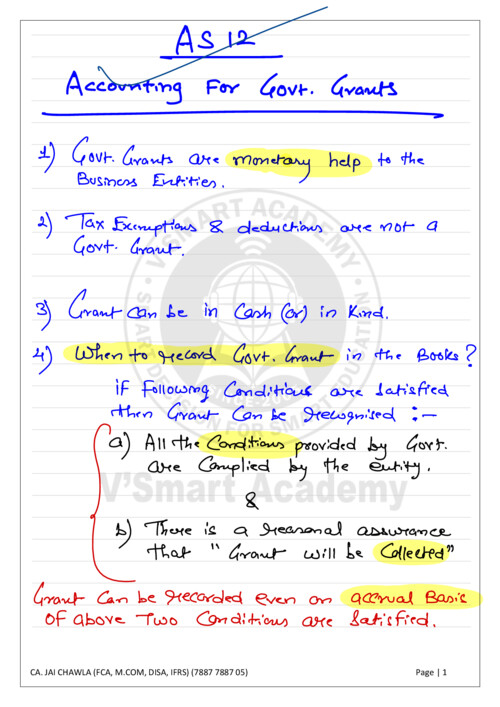 AS 12
Accounting For Govt. Grants
1) Govt. Grants are monetary help to the
Business Entities.
2) Tax Exemptions & deductions are not a
Govt. Grant.
3) Grant can be in Cash (or) in Kind.
4) When to record Govt. Grant in the Books?
if Following Conditions are Satisfied
then Grant Can be recognised :-
a) All the Conditions provided by Govt.
are Complied by the entity.
&
b) There is a reasonal assurance
that "Grant will be Collected"
Grant Can be recorded even on accrual Basis
OF above Two Conditions are Satisfied.
V'SMART ACADEMY
V'Smart Academy
CA. JAI CHAWLA (FCA, M.COM, DISA, IFRS) (7887 7887 05)
Page | 1